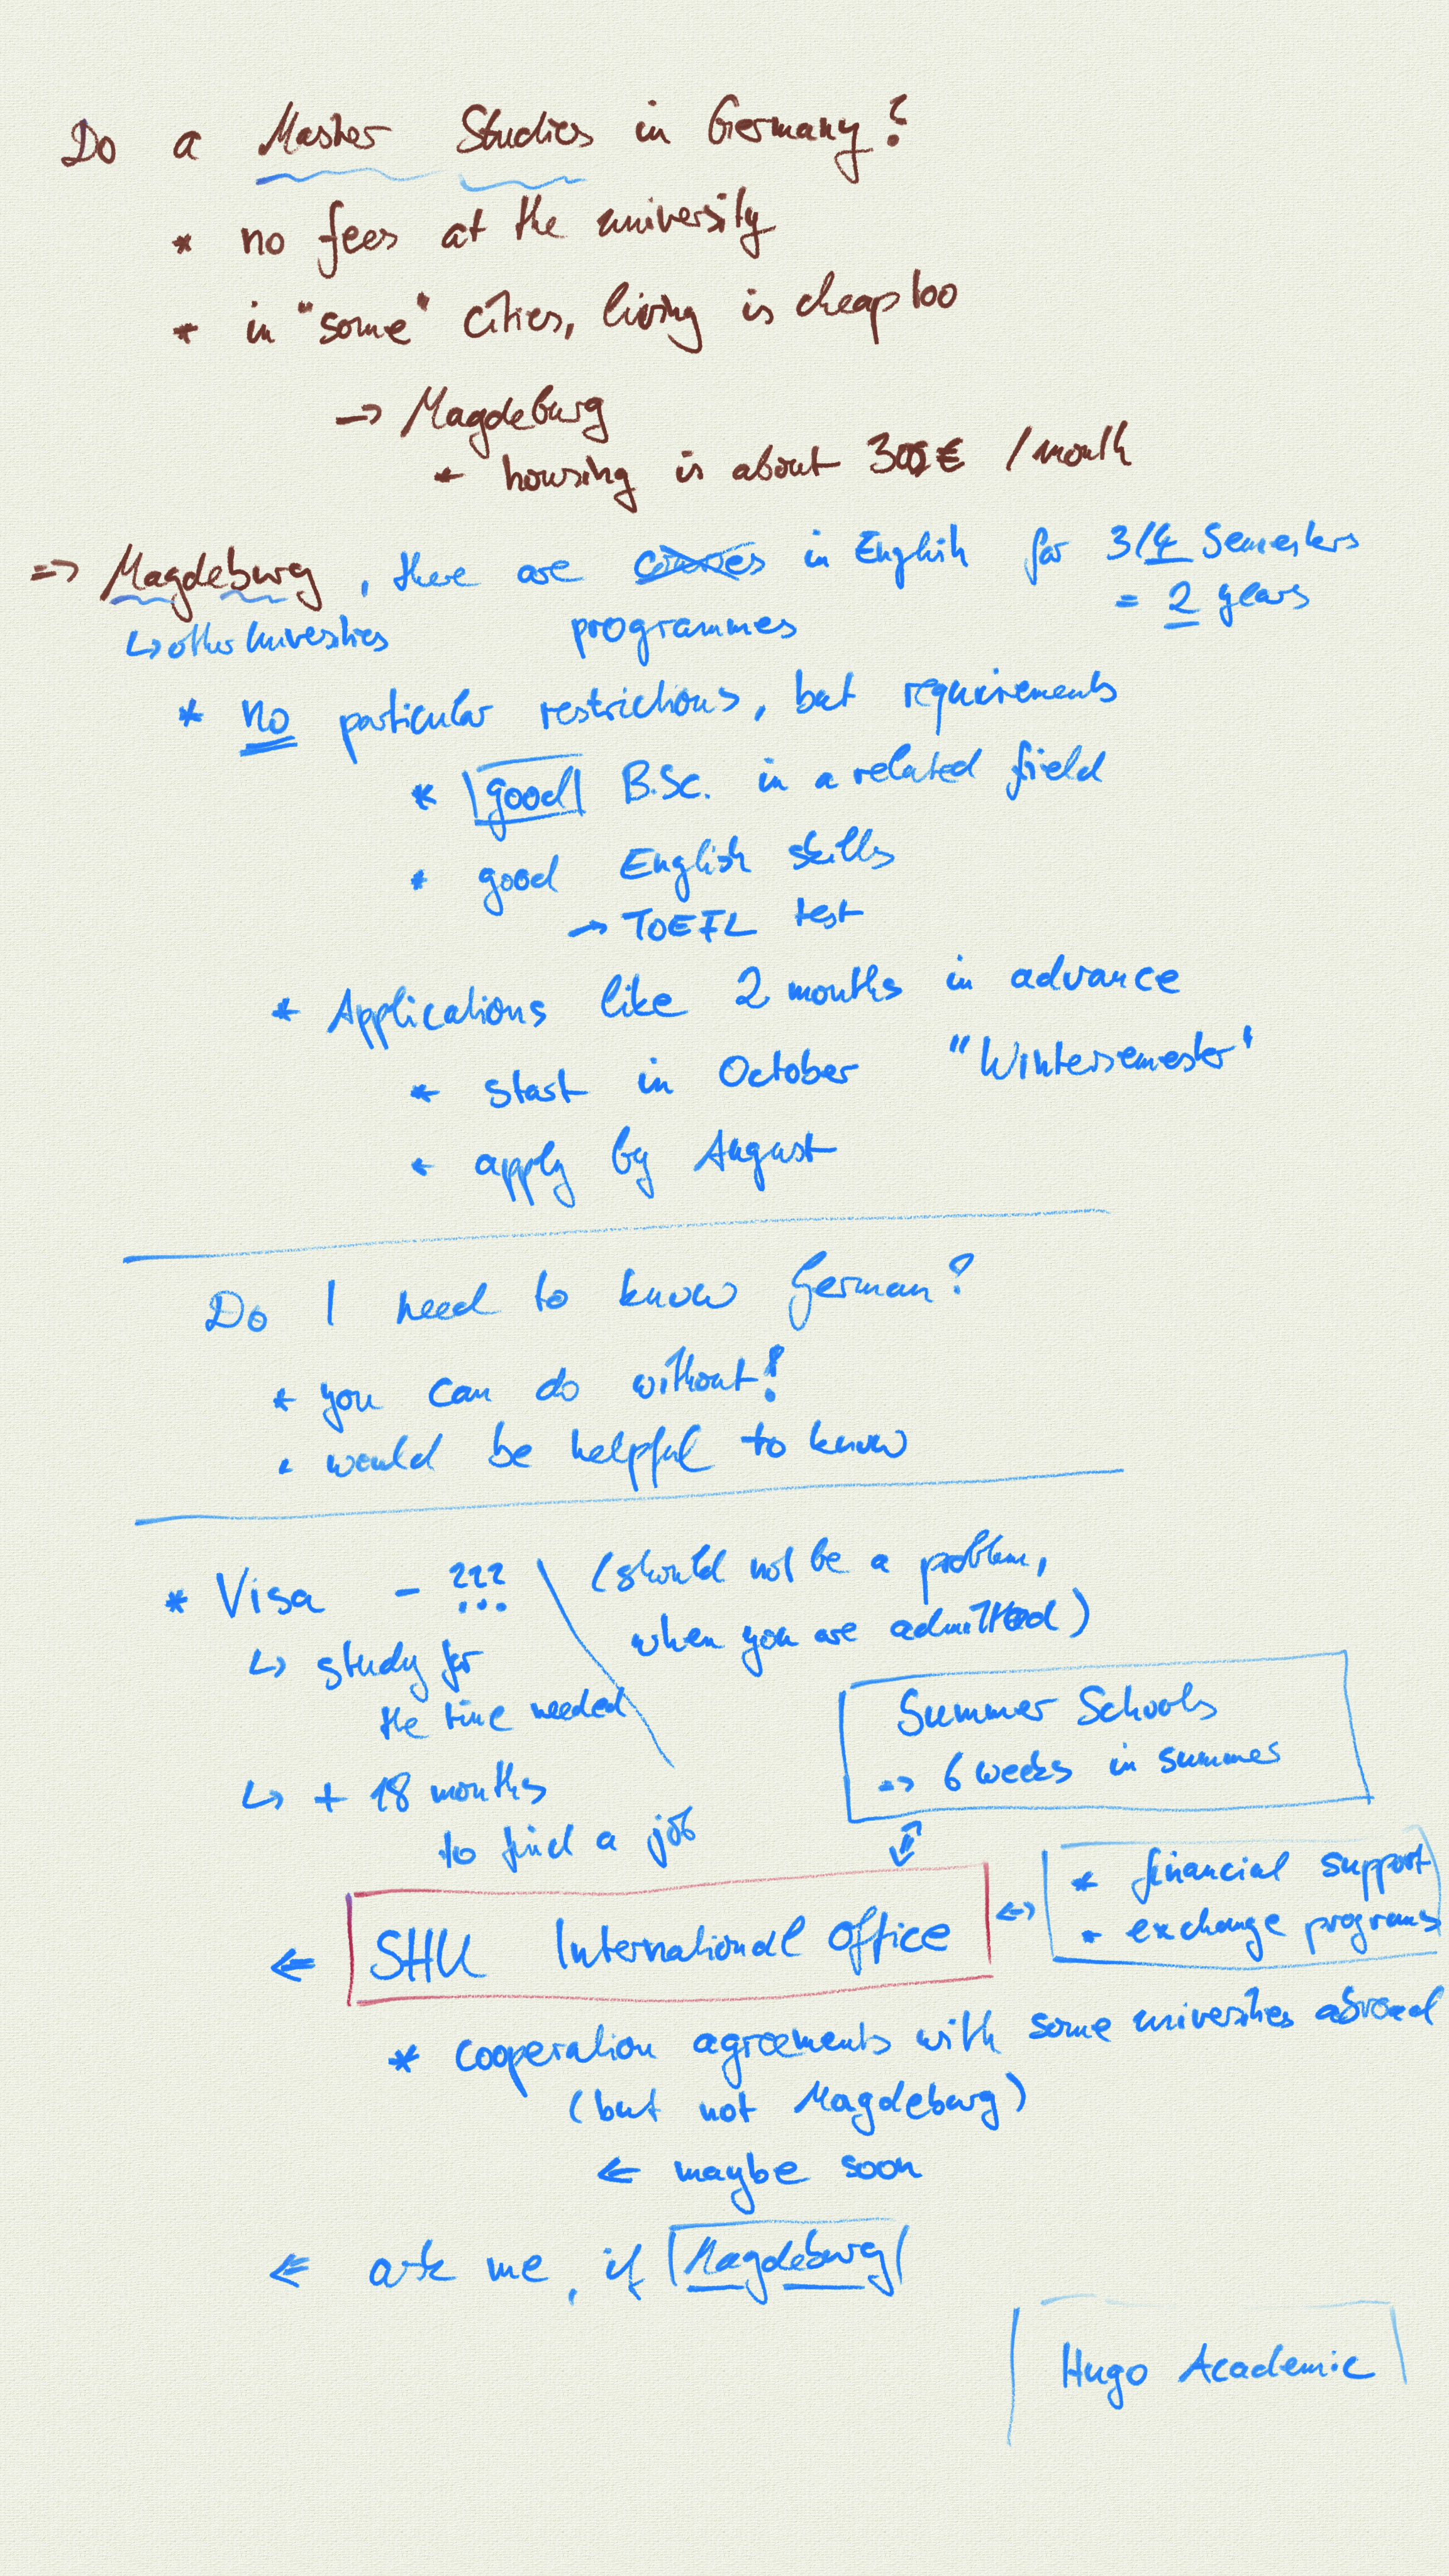 Do a Master Studies in Germany?
* no fees at the university
* in "some" cities, living is cheap too
→ Magdeburg
* housing is about 300€ / month
⇒ Magdeburg, there are courses in English for 3/4 Semesters
= 2 years
↳ other Universities programmes
* no particular restrictions, but requirements
* good B.Sc. in a related field
* good English skills
→ TOEFL test
* Applications like 2 months in advance
* start in October "Wintersemester"
* apply by August
Do I need to know German?
* you can do without!
* would be helpful to know
* Visa - ??? (should not be a problem,
when you are admitted)
↳ study for
the time needed
↳ + 18 months
to find a job
Summer Schools
⇒ 6 weeks in summer
⇐ SHU International Office ↔
* financial support
* exchange programs
* cooperation agreements with some universities abroad
(but not Magdeburg)
⇐ maybe soon
⇐ ask me, if Magdeburg
Hugo Academic